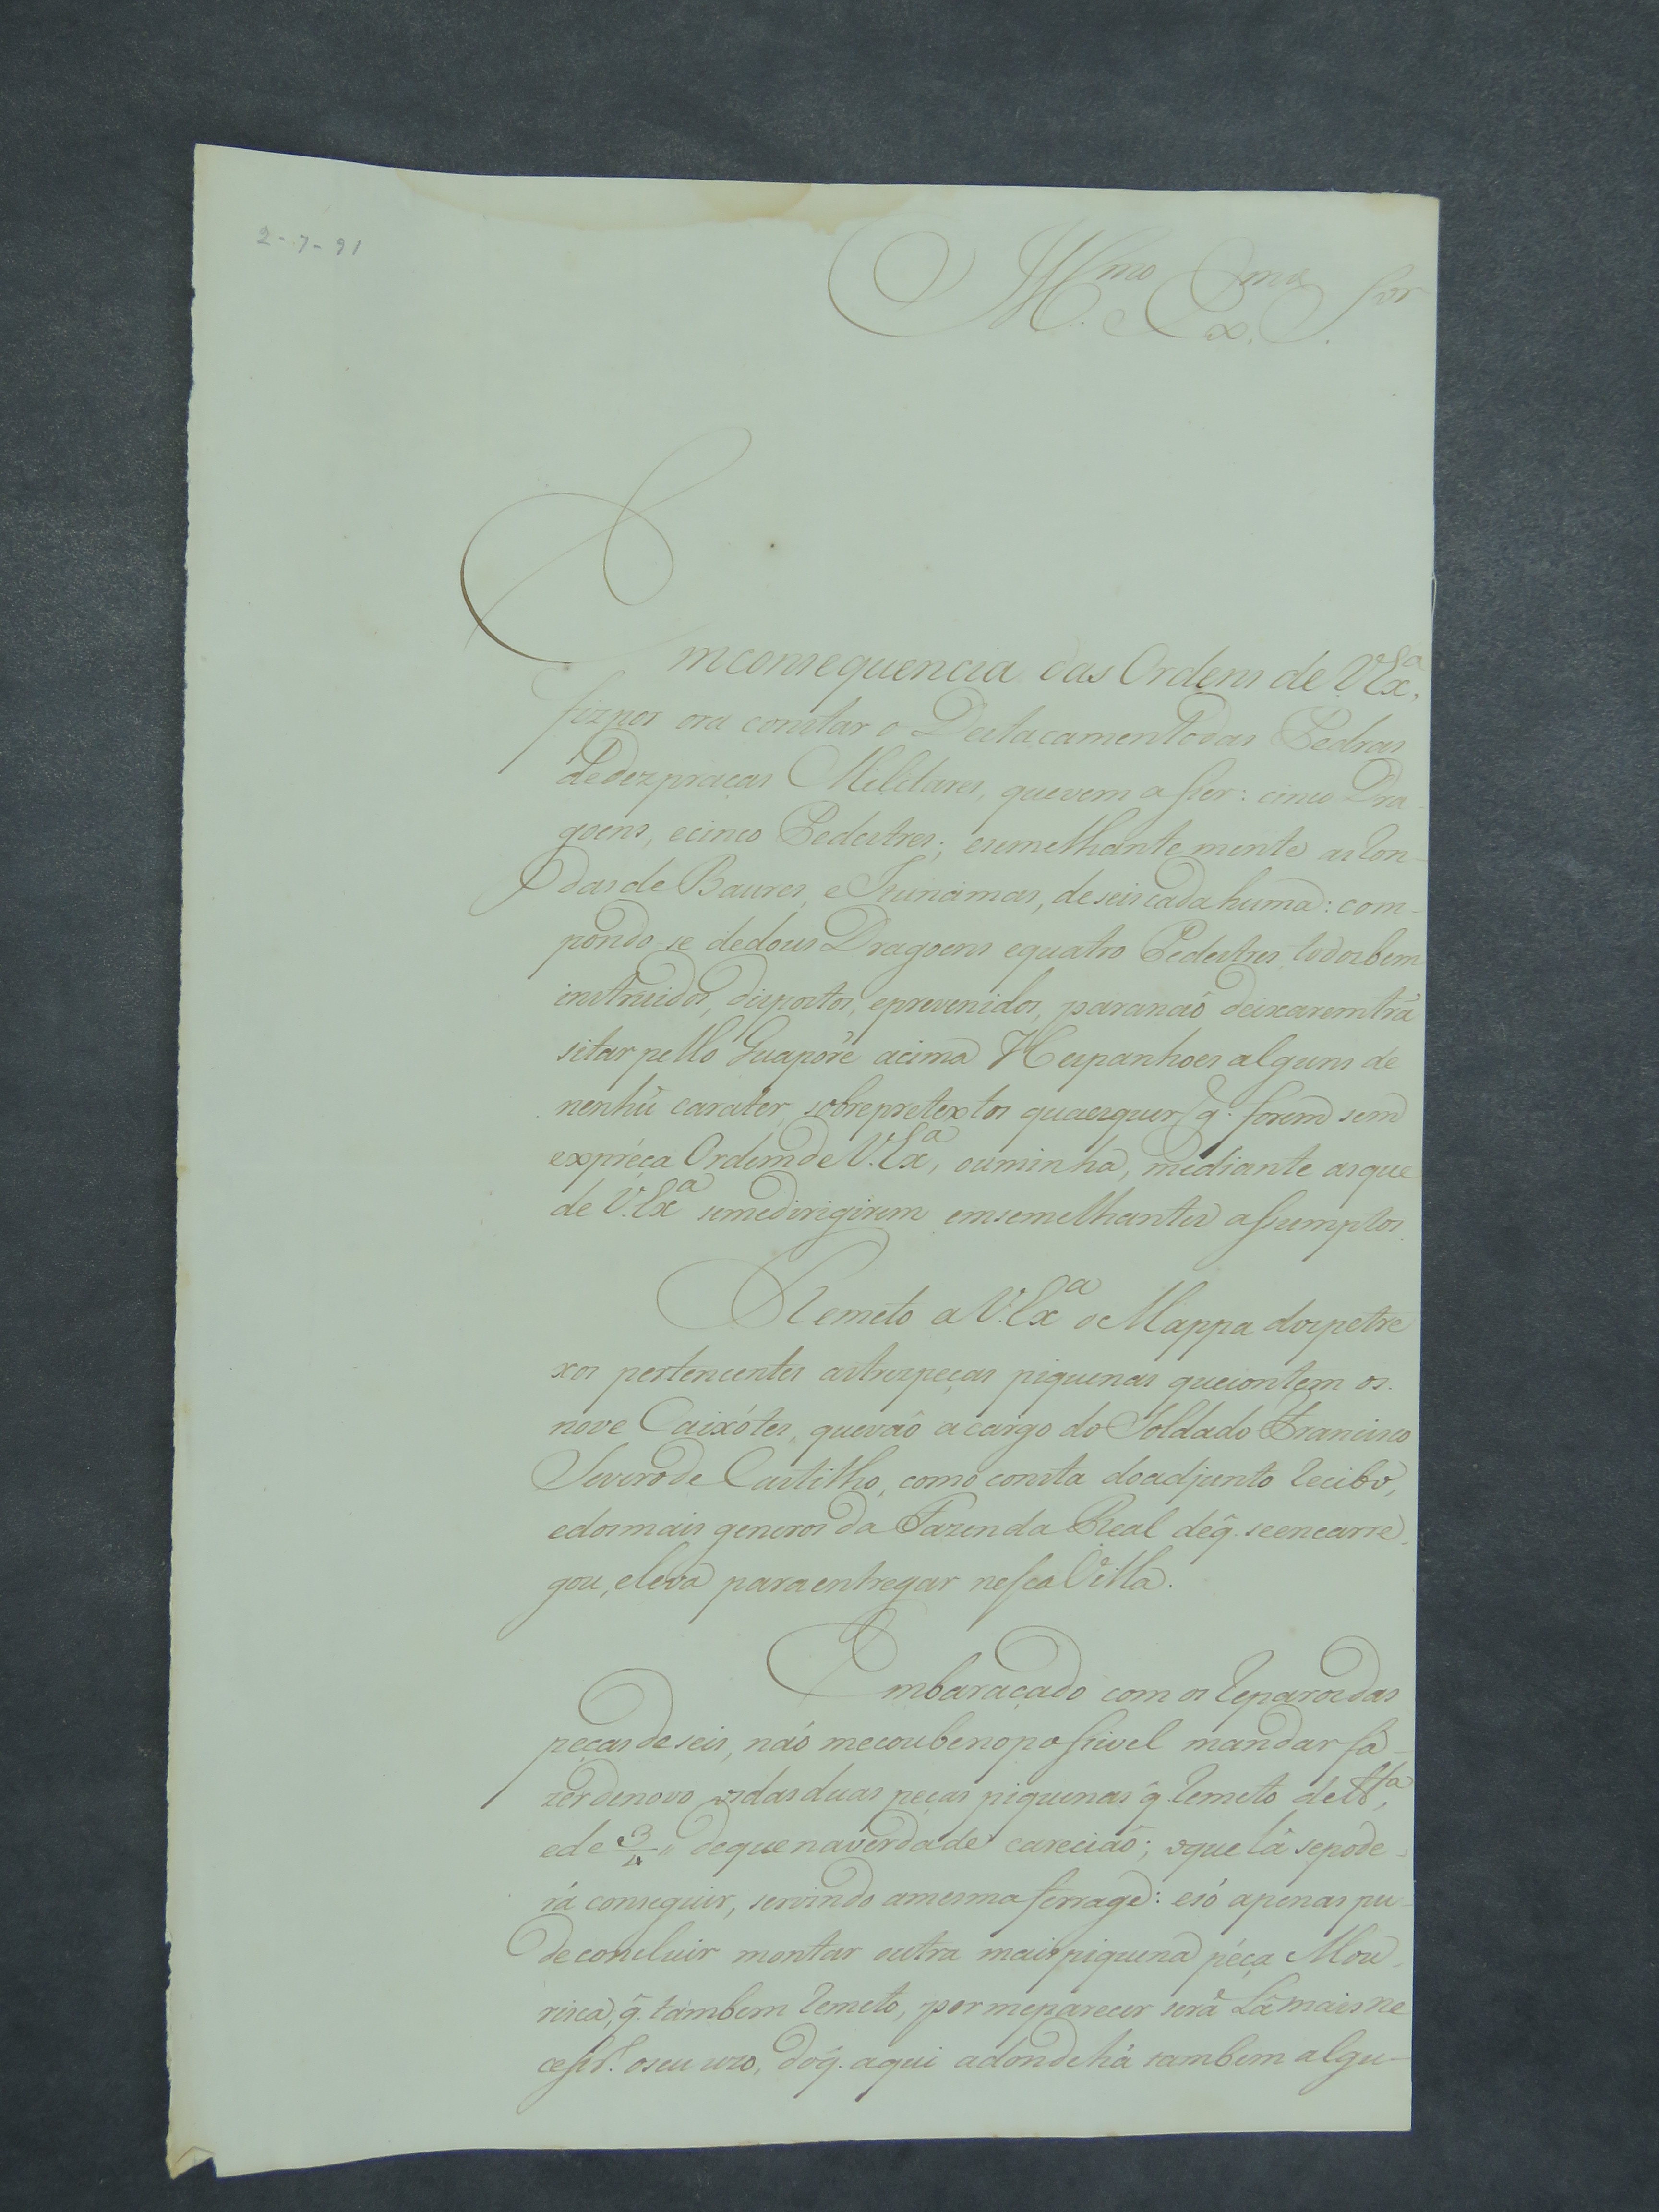 2-7-91
Ill.mo e Ex.mo Snr
Em consequencia das Ordens de V. Ex.a,
fiz por ora constar o Destacamento das Pedras
de dez praças Militares, que vem a ser: cinco Dra-
goens, e cinco Pedestres; e semelhantemente as Ron-
das de Baures, e Itunamas, de seis cada huma: com-
pondo-se de dous Dragoens e quatro Pedestres todos bem
instruidos, dispostos, e prevenidos, para naõ deixarem trã
sitar pello Guaporé acima Hespanhoes alguns de
nenhũ carater, sobre pretextos quaesquer q̃. forem sem
expréça Ordem de V. Ex.a, ou minha, mediante as que
de V. Ex.a se me dirigirem em semelhantes assumptos.
Remeto a V. Ex.a o Mappa dos petre
xos pertencentes as tres peças piquenas que contem os
nove Caixótes, que vaõ a cargo do Soldado Francisco
Severo de Castilho, como consta do adjunto recibo,
e dos mais generos da Fazenda Real de q̃. se encarre-
gou, e leva para entregar nessa Villa.
Embaraçado com os reparos das
peças de seis, naõ me coube no possivel mandar fa-
zer de novo os das duas peças piquenas q̃. remeto de
e de 3/4 " de que na verdade careciaõ; o que lá se pode-
rá conseguir, servindo a mesma ferragẽ: e só apenas pu-
de concluir montar outra mais piquena péça Mou-
risca, q̃. tambem remeto, por me parecer será Lá mais ne
cessr.o o seu uzo, do q̃. aqui adonde há tambem algu-